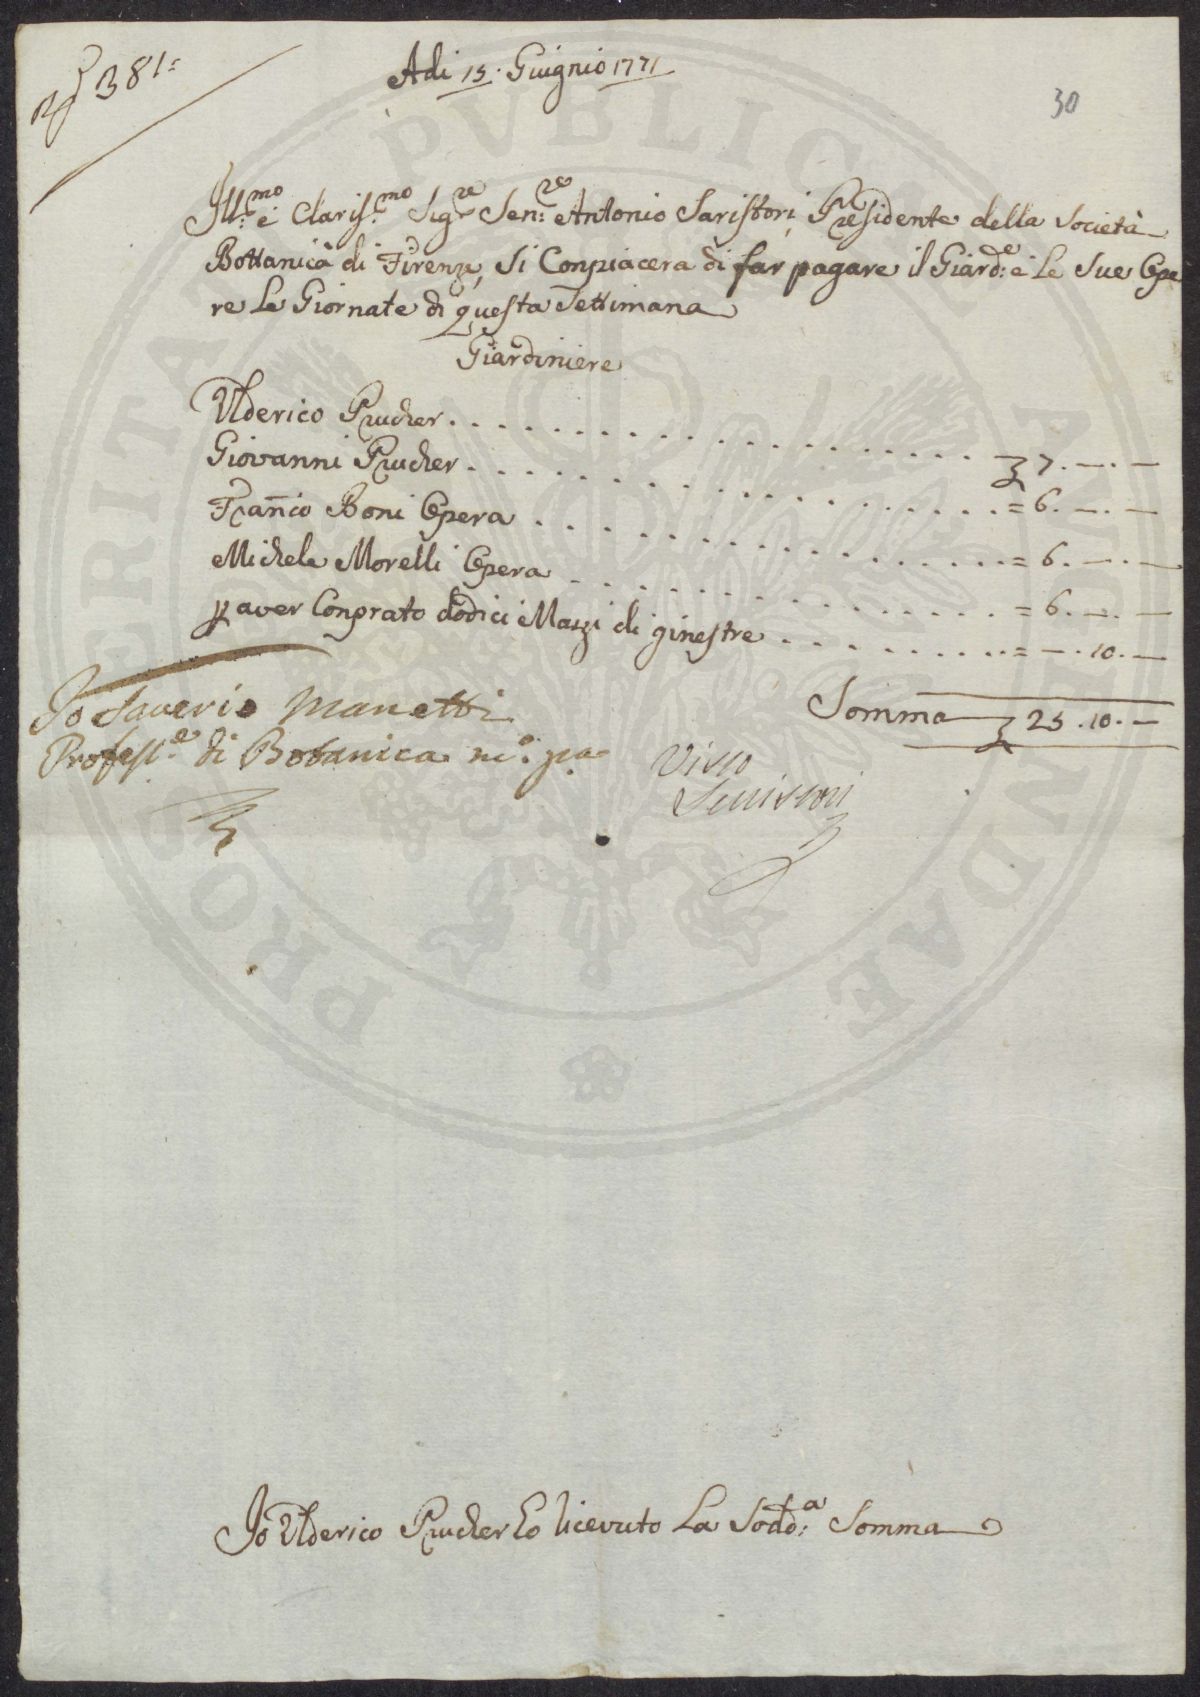 381:
Adi 15. Giugnio 1771
30
Ill:mo e Claris.mo Sig.re Sen:re Antonio Saristori Presidente della Società
Bottanica di Firenze, Si Conpiacera di far pagare il Giard:e e Le Sue Ope
re Le Giornate di questa Settimana
Giardiniere
Ulderico Prucher . . . . . . . . . . . . . . . . . . 7. — . —
Giovanni Prucher . . . . . . . . . . . . . . . . . . = 6. — . —
Franc̃o Boni Opera . . . . . . . . . . . . . . . . = 6. — . —
Michele Morelli Opera . . . . . . . . . . . . . . = 6. — . —
p aver Conprato dodici Mazzi di ginestre . . . . . . . . = — . 10. —
Somma 25. 10. —
Io Saverio Manetti
Profess.e di Botanica m.o pa
Visto
Serristori
Io Ulderico Prucher ho Ricevuto La Sodd:a Somma
PRO PERITA PVBLIC AVGENDAE